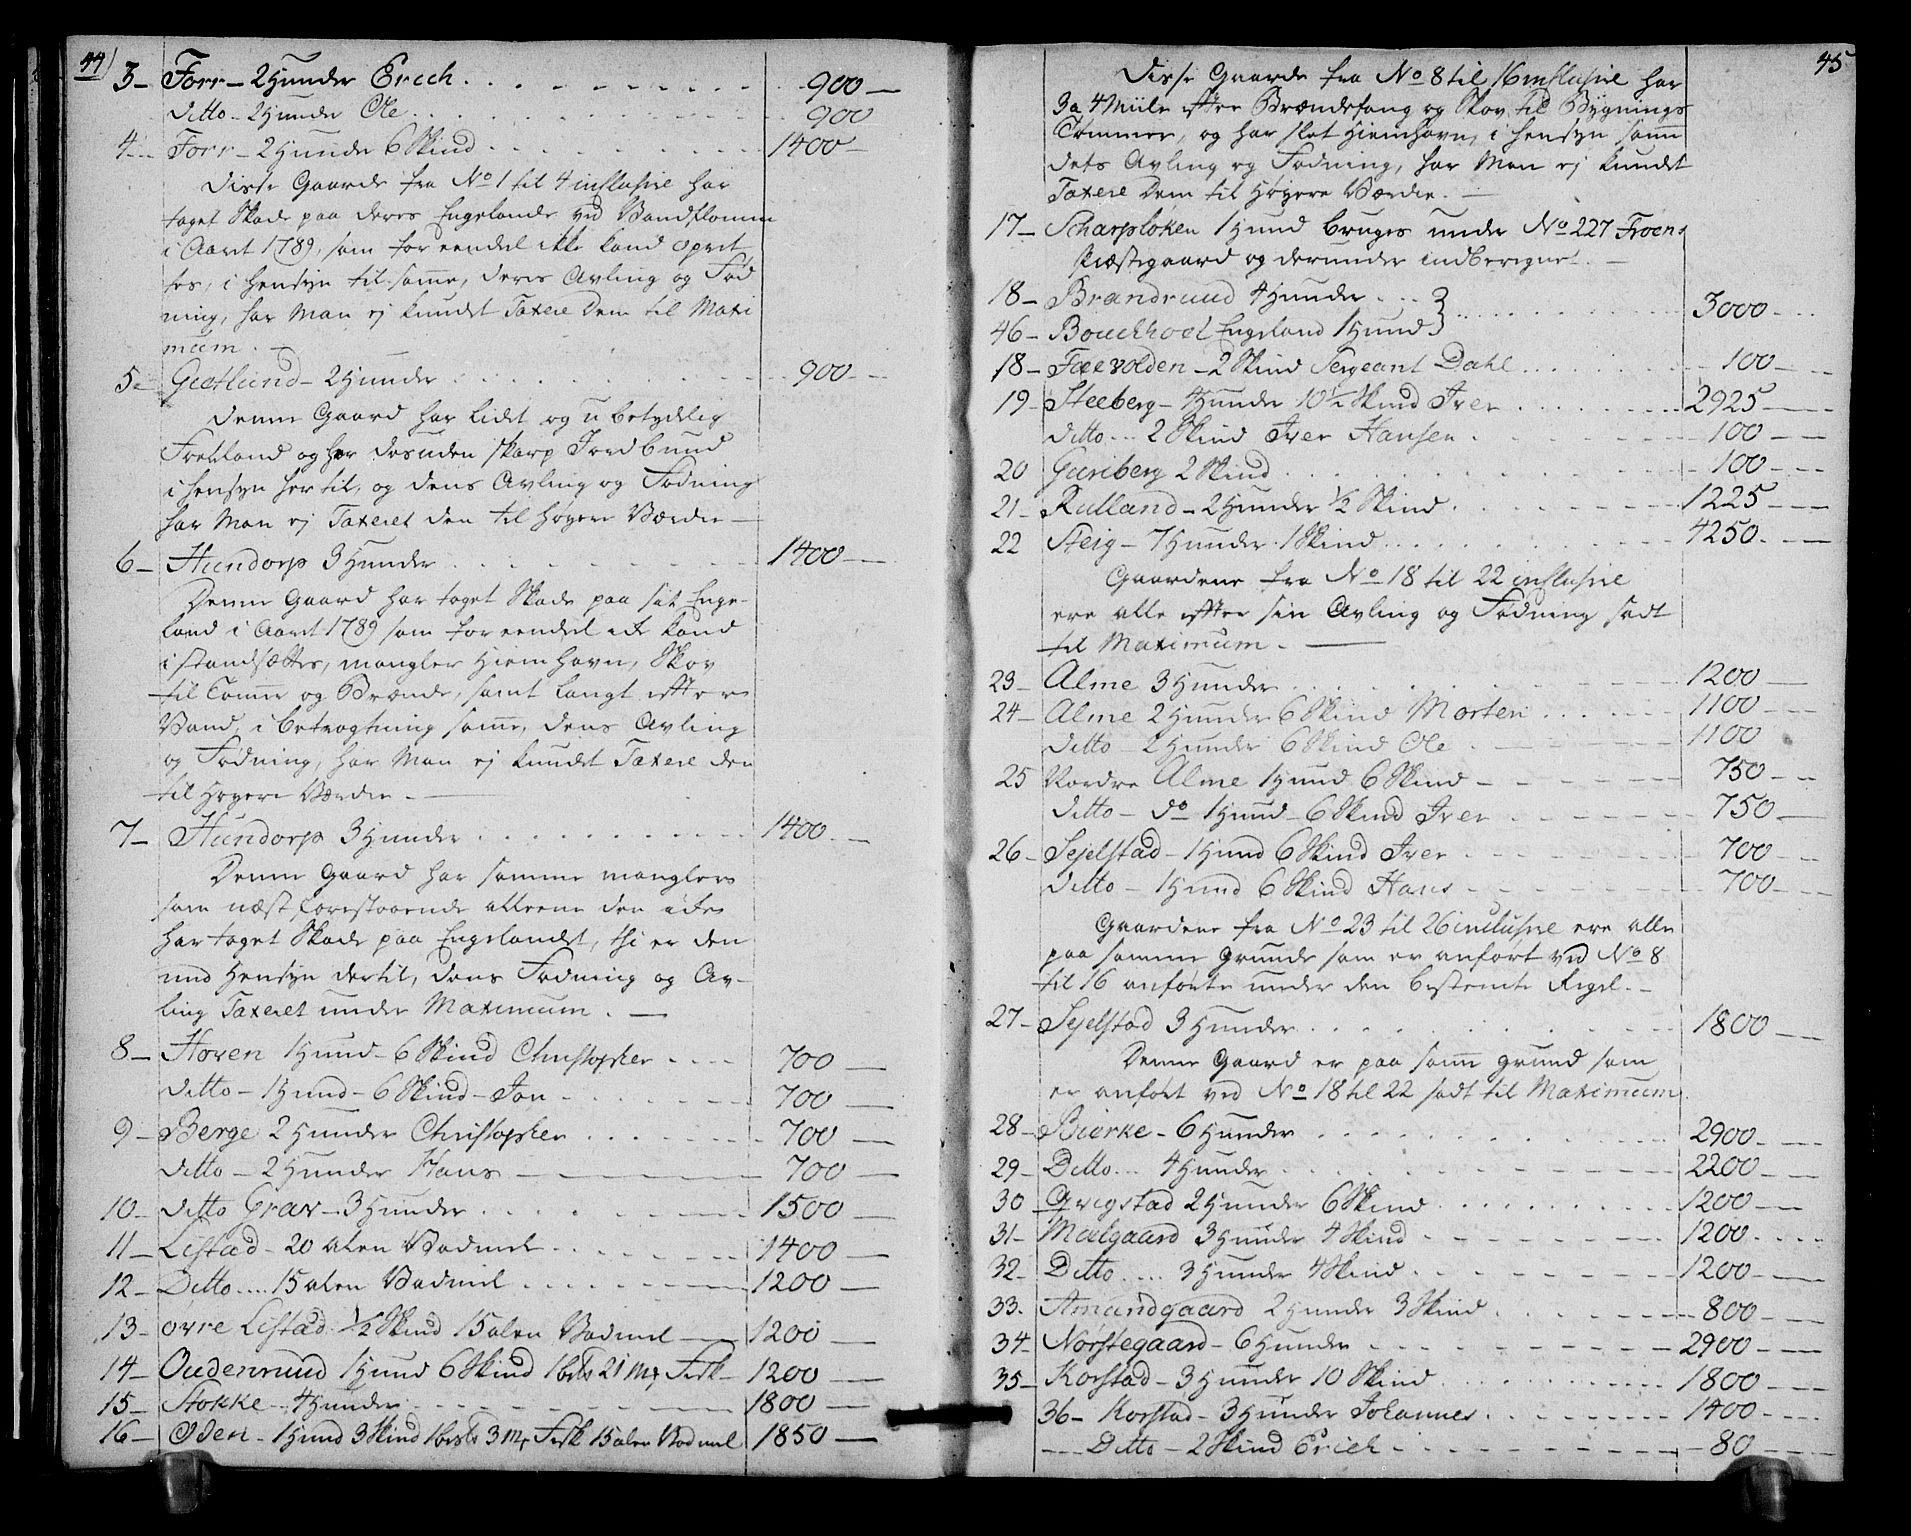 44)
3 - Forr - 2 Hunder Erich . . . 900 -
Ditto - 2 Hunder Ole . . . 900
4 - Forr - 2 Hunde 6 Skind . . . 1400 -
Disse Gaarde fra No 1 til 4 inclusive har
taget Skade paa deres Engelande ved Vandflomme
i Aaret 1789, som for eendel ikke kand opret
tes, i hensyn til samme, deris Avling og Fød
ning, har Man ej kundet Taxere Dem til Maxi
mum. -
5 - Grotlund - 2 Hunder . . . 900 -
Denne Gaard har lidet og ubetydelig
Fortland og har desuden skarp Jordbund
i hensyn hertil, og dens Avling og Fødning
har Man ej Taxeret den til høyere Værdie -
6 - Hundorp 3 Hunder . . . 1400 -
Denne Gaard har taget Skade paa sit Enge-
land i Aaret 1789 som for eendel ei kand
istandsættes, mangler Hiemhavn, Skov
til Tømmer og Brænde, samt langt efter
Vand, i betragtning samme, dens Avling
og Fødning, har Man ej kundet Taxere den
til høyere Værdie. -
7 - Hundorp 3 Hunder . . . 1400 -
Denne Gaard har samme mangler
som næst forestaaende allene den ikke
har taget Skade paa Engelandet, thi er den
med Hensyn dertil, dens Fødning og Av-
ling Taxeret under Maximum. -
8 - Hoven 1 Hund - 6 Skind Christopher . . . 700 -
Ditto - 1 Hund - 6 Skind - Jon . . . 700 -
9 - Berge 2 Hunder Christopher . . . 700 -
Ditto - 2 Hunder Hans - 700 -
10 - Ditto Grav - 3 Hunder . . . 1500 -
11 - Listad - 20 alen Vadmel . . . 1400 -
12 - Ditto .... 15 alen Vadmel . . . 1200 -
13 - øvre Listad ½ Skind 15 alen Vadmel - 1200 -
14 - Oudenrund 1 Hund 6 Skind 1 21 Mk Fisk - 1200 -
15 - Stokke - 4 Hunder . . . 1800 -
16 - Oden - 1 Hund 3 Skind 1 3 Mk Fisk 15 alen Vadmel 1850 -
45
Disse Gaarde fra No 8 til 16 inclusive har
3 a 4 Miile efter Brændefang og Skov til Bygnings
Tømmer, og har slet Hiemhavn, i hensyn samme
dets Avling og Fødning, har Man ej kundet
Taxere Dem til Høyere Værdie. -
17 - Scharpløken 1 Hund bruges under No 227 Froens
Præstegaard og derunder indberegnet. -
18 - Brandrund 4 Hunder . . .
46 - Bouckhoel Engeland 1 Hund } . . . 3000 -
18 - Faevolden - 2 Skind Sergeant Dahl . . . 100 -
19 - Steeberg - 4 Hunder 10½ Skind Iver . . . 2925 -
Ditto ... 2 Skind Iver Hansen . . . 100 -
20 Guriberg 2 Skind . . . 100 -
21 - Rulland - 2 Hunder ½ Skind . . . 1225 -
22 Steig - 7 Hunder 1 Skind . . . 4250 -
Gaardene fra No 18 til 22 inclusive
ere alle efter sin Avling og Fødning sadt
til Maximum. -
23 - Alme 3 Hunder . . . 1200 -
24 - Alme 2 Hunder 6 Skind Morten . . . 1100 -
Ditto - 2 Hunder 6 Skind Ole . . . 1100
25 Nordre Alme 1 Hund 6 Skind - 750 -
Ditto - do 1 Hund - 6 Skind Iver . . . 750 -
26 - Sejelstad - 1 Hund 6 Skind Iver . . . 700 -
Ditto - 1 Hund 6 Skind Hans . . . 700 -
Gaardene fra No 23 til 26 inclusive ere alle
paa samme Grunde som er anført ved No 8
til 16 anførte under den bestemte Regel. -
27 - Sejelstad 3 Hunder . . . 1800 -
Denne Gaard er paa samme grund som
er anført ved No 18 til 22 sadt til Maximum.
28 - Bierke - 6 Hunder . . . 2900 -
29 - Ditto ... 4 Hunder . . . 2200 -
30 Qvigstad 2 Hunder 6 Skind . . . 1200 -
31 - Moelgaard 3 Hunder 4 Skind . . . 1200 . . .
32 - Ditto .... 3 Hunder 4 Skind . . . 1200 -
33. Amundgaard 2 Hunder 3 Skind . . . 800 -
34 - Norstegaard - 6 Hunder . . . 2900 -
35 - Korstad - 3 Hunder 10 Skind . . . 1800 -
36 - Korstad - 3 Hunder Johannes . . . 1400 -
- Ditto - 2 Skind Erich . . . 80 -